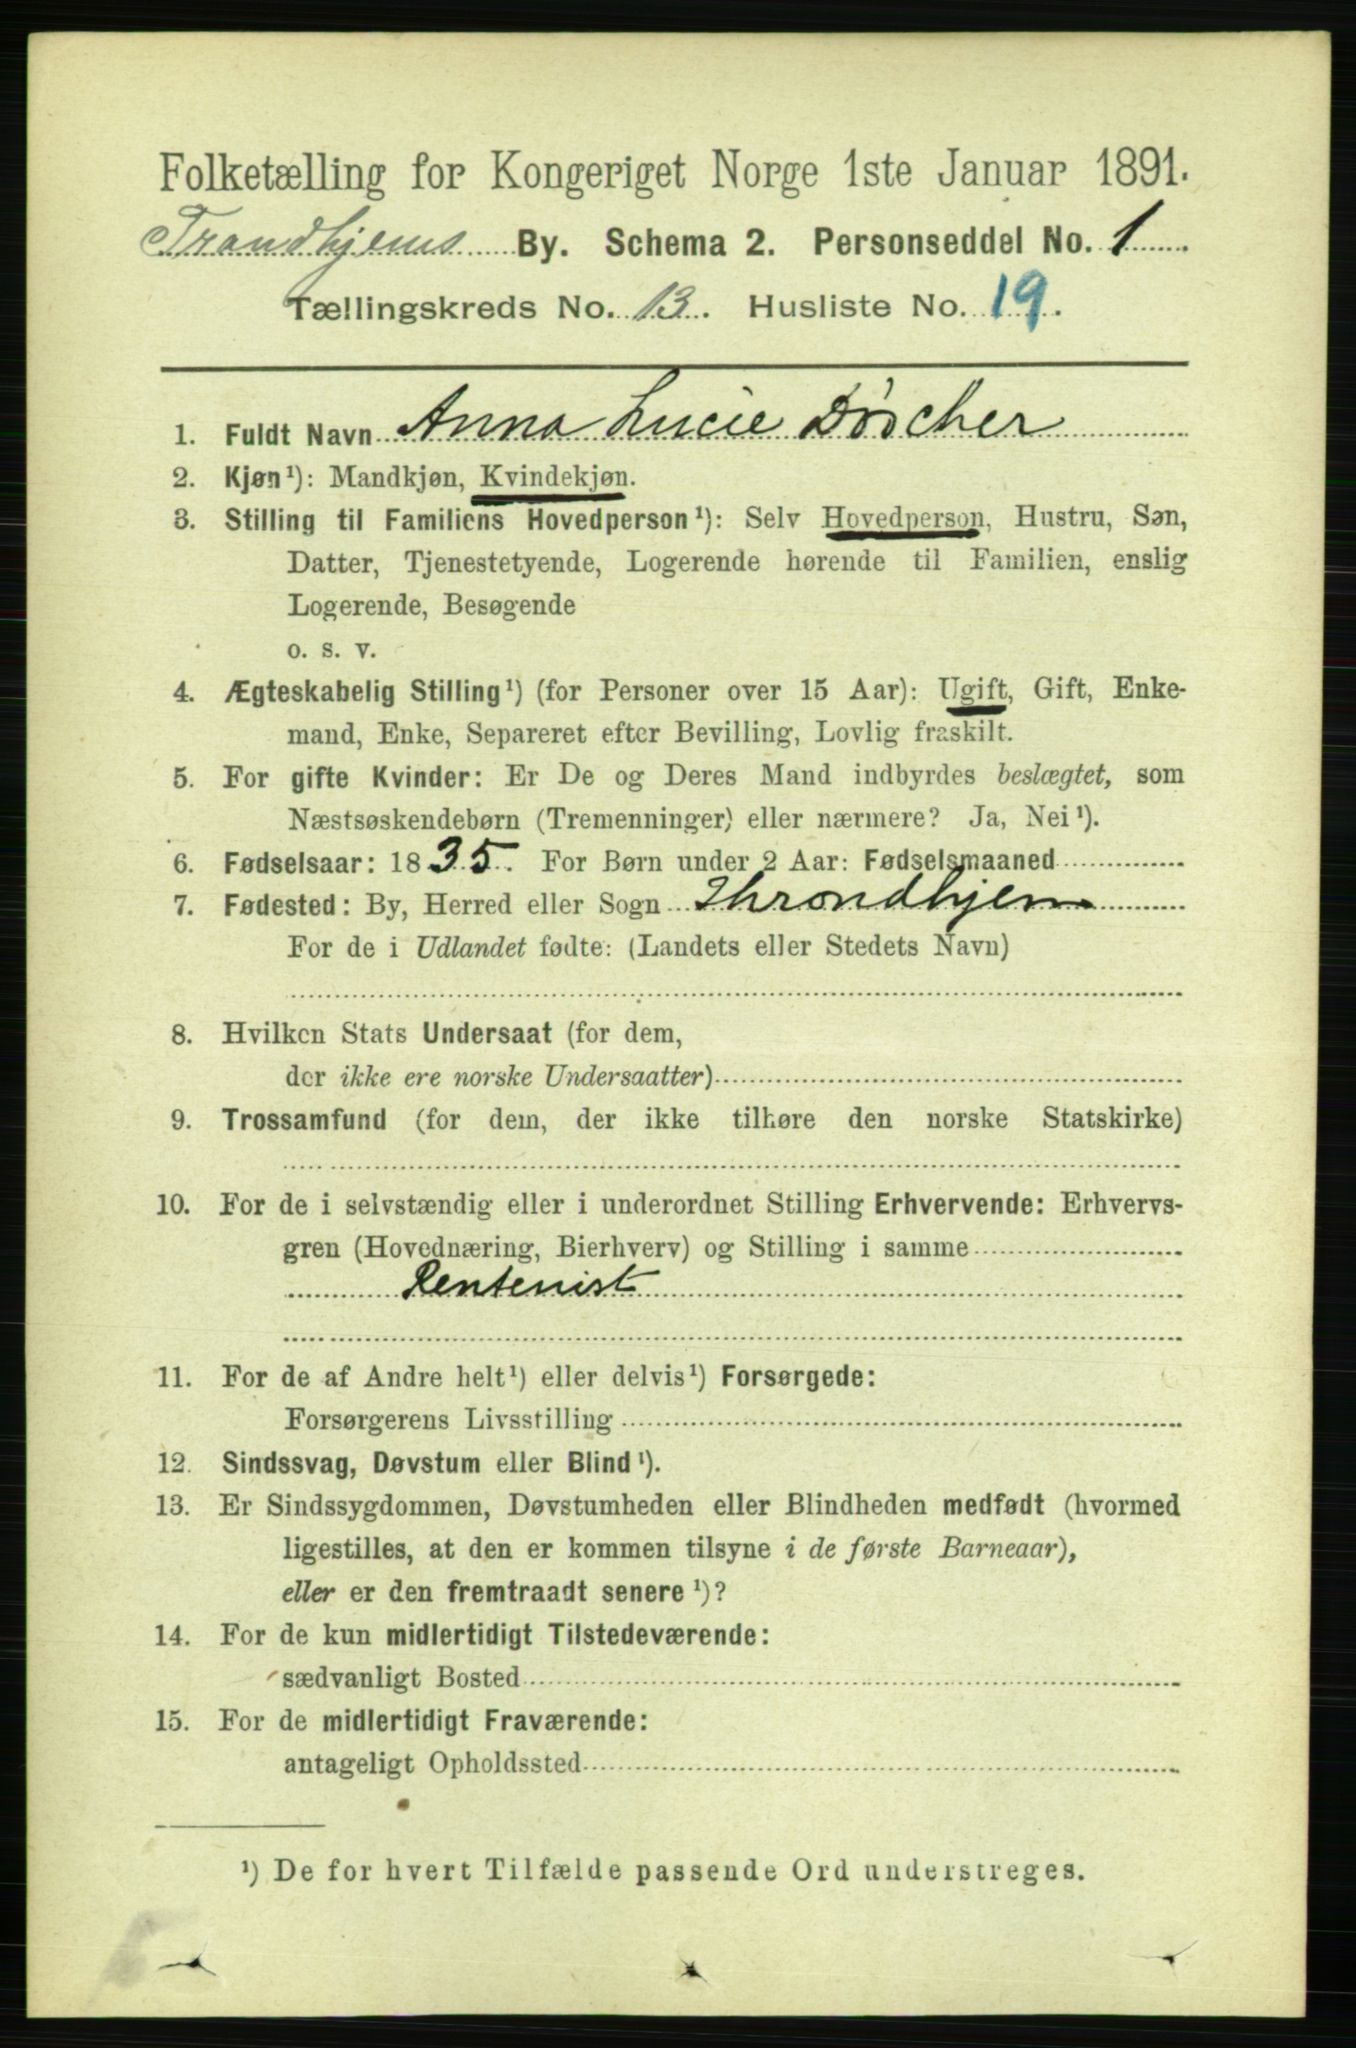 Folketælling for Kongeriget Norge 1ste Januar 1891.
Trondhjems By. Schema 2. Personseddel No. 1
Tællingskreds No. 13. Husliste No. 19.
1. Fuldt Navn Anna Lucie Döscher
2. Kjøn¹): Mandkjøn, Kvindekjøn.
3. Stilling til Familiens Hovedperson¹): Selv Hovedperson, Hustru, Søn,
Datter, Tjenestetyende, Logerende hørende til Familien, enslig
Logerende, Besøgende
o. s. v.
4. Ægteskabelig Stilling¹) (for Personer over 15 Aar): Ugift, Gift, Enke-
mand, Enke, Separeret efter Bevilling, Lovlig fraskilt.
5. For gifte Kvinder: Er De og Deres Mand indbyrdes beslægtet, som
Næstsøskendebørn (Tremenninger) eller nærmere? Ja, Nei¹).
6. Fødselsaar: 1835. For Børn under 2 Aar: Fødselsmaaned
7. Fødested: By, Herred eller Sogn Throndhjem
For de i Udlandet fødte: (Landets eller Stedets Navn)
8. Hvilken Stats Undersaat (for dem,
der ikke ere norske Undersaatter)
9. Trossamfund (for dem, der ikke tilhøre den norske Statskirke)
10. For de i selvstændig eller i underordnet Stilling Erhvervende: Erhvervs-
gren (Hovednæring, Bierhverv) og Stilling i samme
Rentenist
11. For de af Andre helt¹) eller delvis¹) Forsørgede:
Forsørgerens Livsstilling
12. Sindssvag, Døvstum eller Blind¹).
13. Er Sindssygdommen, Døvstumheden eller Blindheden medfødt (hvormed
ligestilles, at den er kommen tilsyne i de første Barneaar),
eller er den fremtraadt senere¹)?
14. For de kun midlertidigt Tilstedeværende:
sædvanligt Bosted
15. For de midlertidigt Fraværende:
antageligt Opholdssted
¹) De for hvert Tilfælde passende Ord understreges.